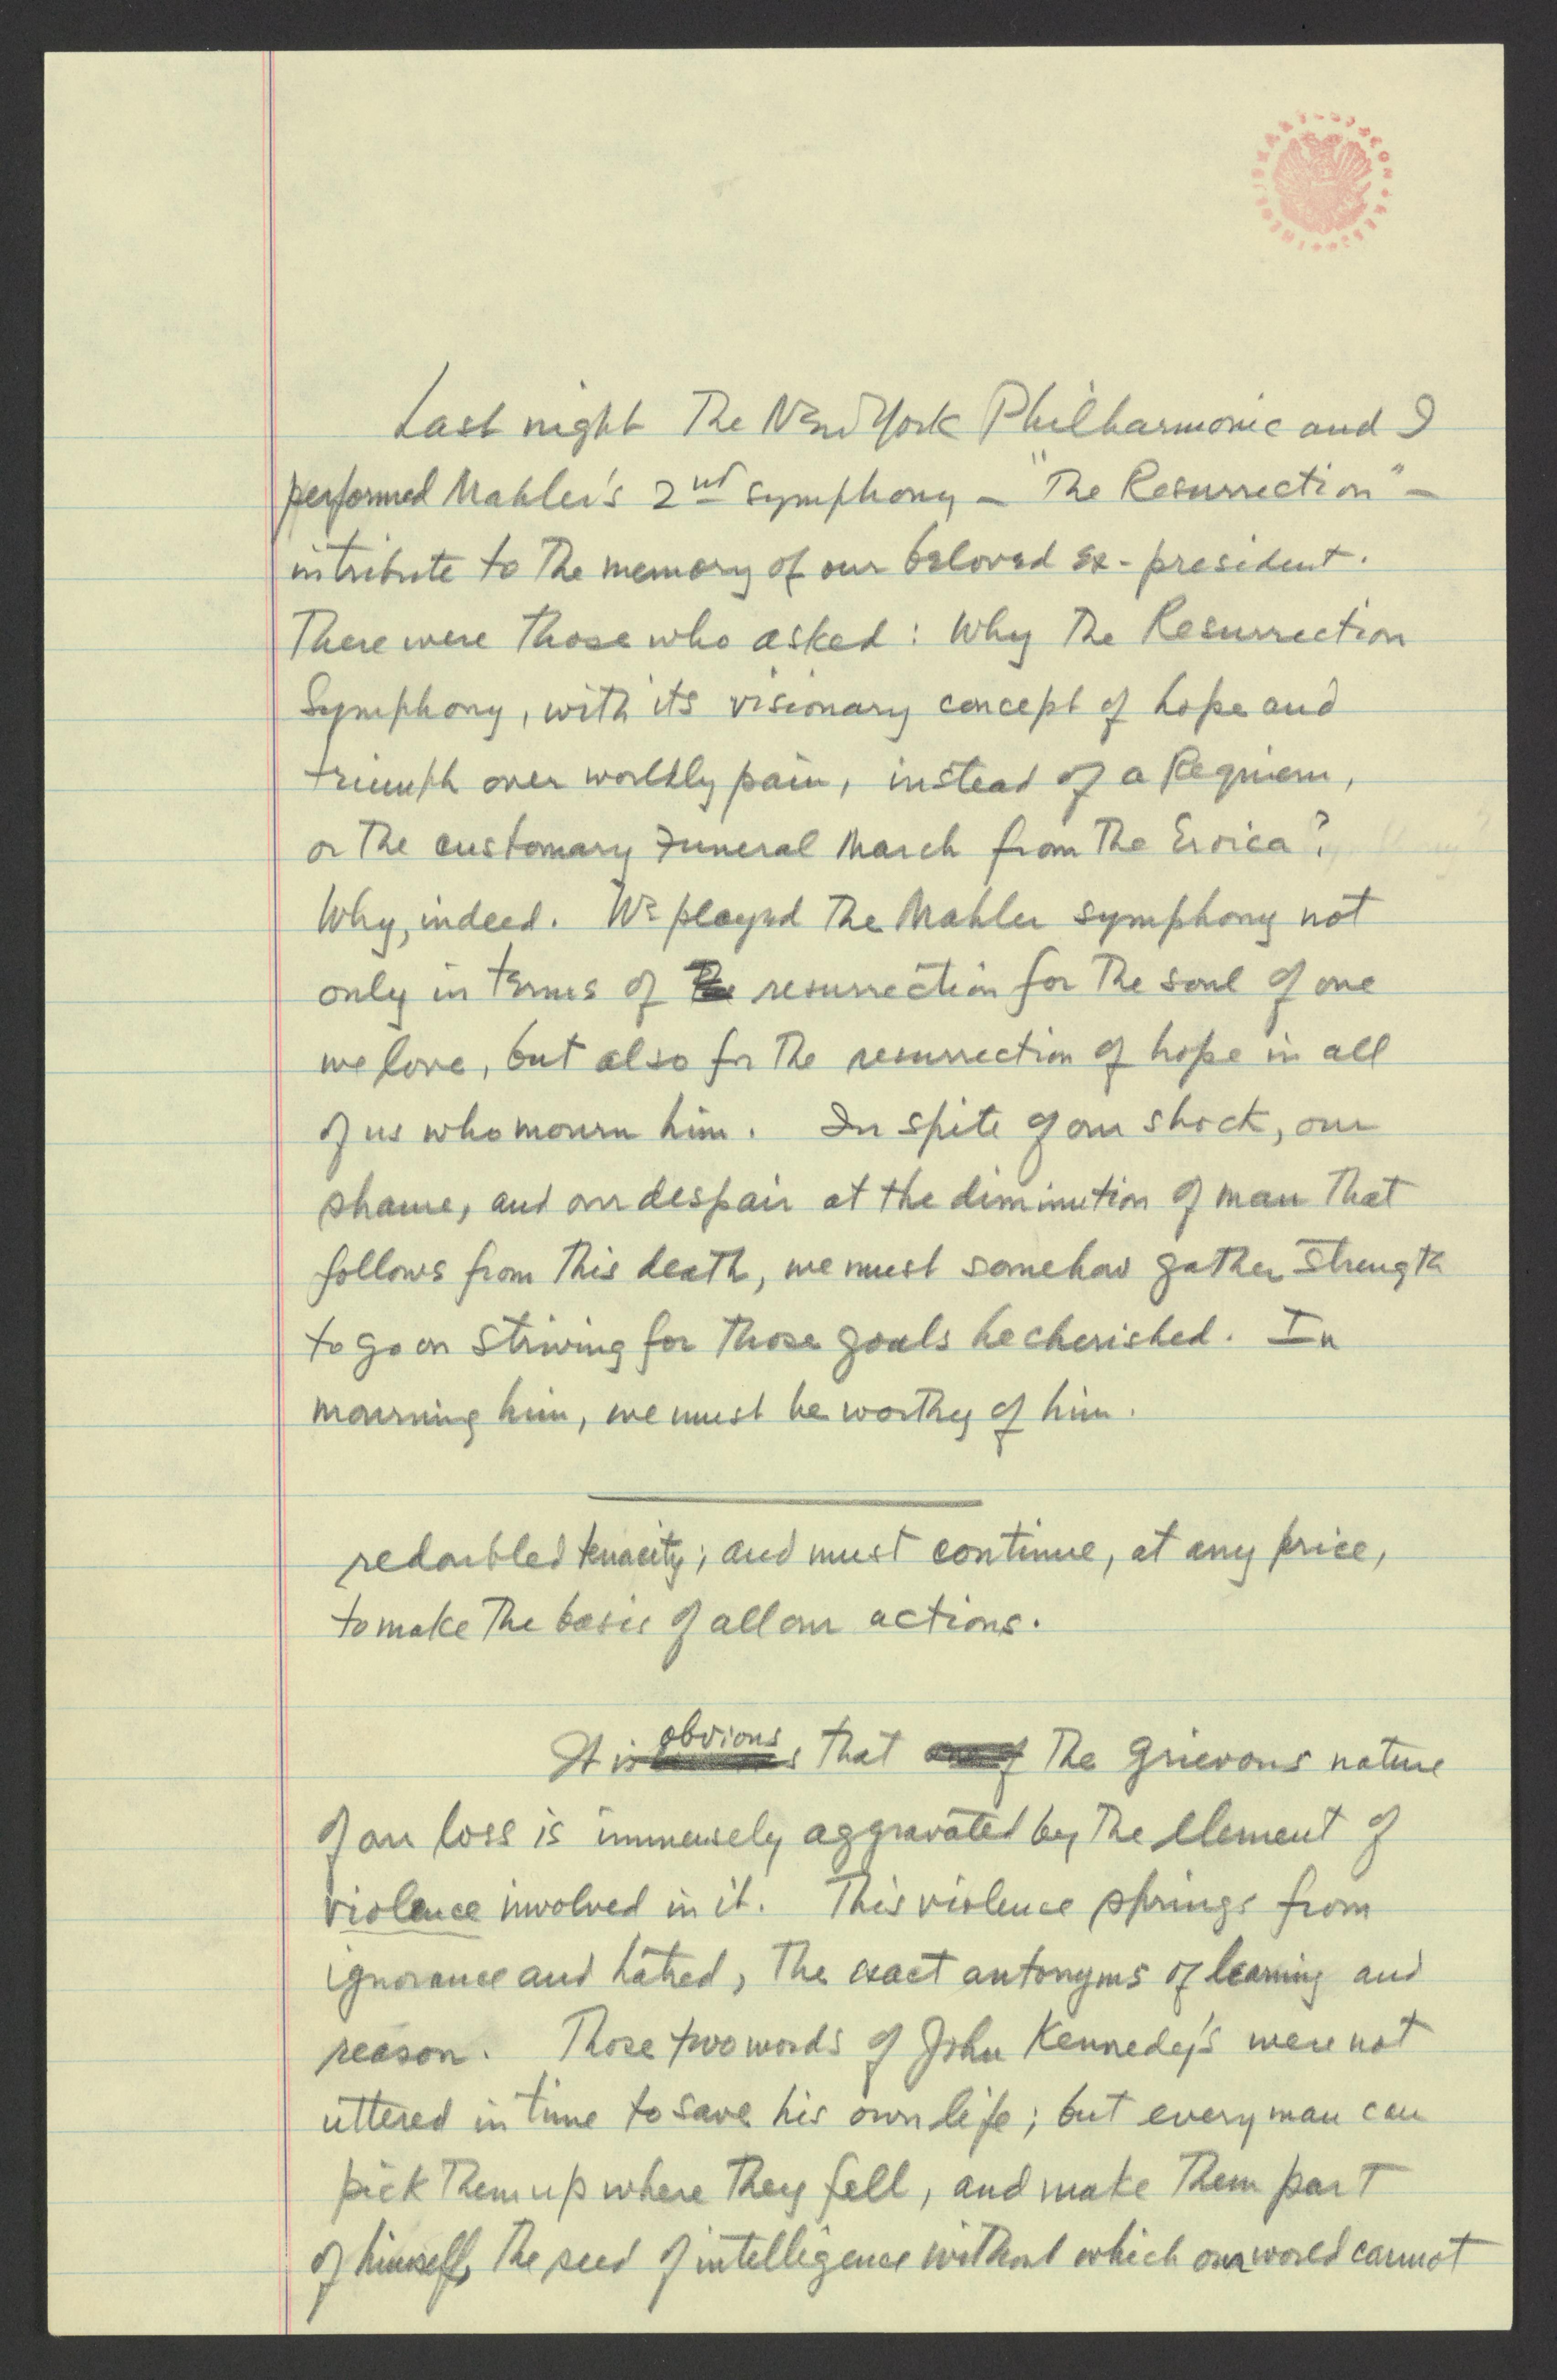 Last night The New York Philharmonic and I
performed Mahler's 2nd symphony – "The Resurrection" –
in tribute to The memory of our beloved ex-president.
There were those who asked: Why The Resurrection
Symphony, with its visionary concept of hope and
triumph over worldly pain, instead of a Requiem,
or The customary Funeral March from The Eroica?
Why, indeed. We played The Mahler symphony not
only in terms of resurrection for The soul of one
we love, but also for The resurrection of hope in all
of us who mourn him. In spite of our shock, our
shame, and our despair at the diminution of man That
follows from This death, we must somehow gather strength
to go on striving for Those goals he cherished. In
mourning him, we must be worthy of him.
redoubled tenacity; and must continue, at any price,
to make The basis of all our actions.
obvious
It is that The grievous nature
of our loss is immensely aggravated by The element of
violence involved in it. This violence springs from
ignorance and hatred, The exact antonyms of learning and
reason. Those two words of John Kennedy's were not
uttered in time to save his own life; but every man can
pick Them up where They fell, and make Them part
of himself, The seed of intelligence without which our world cannot